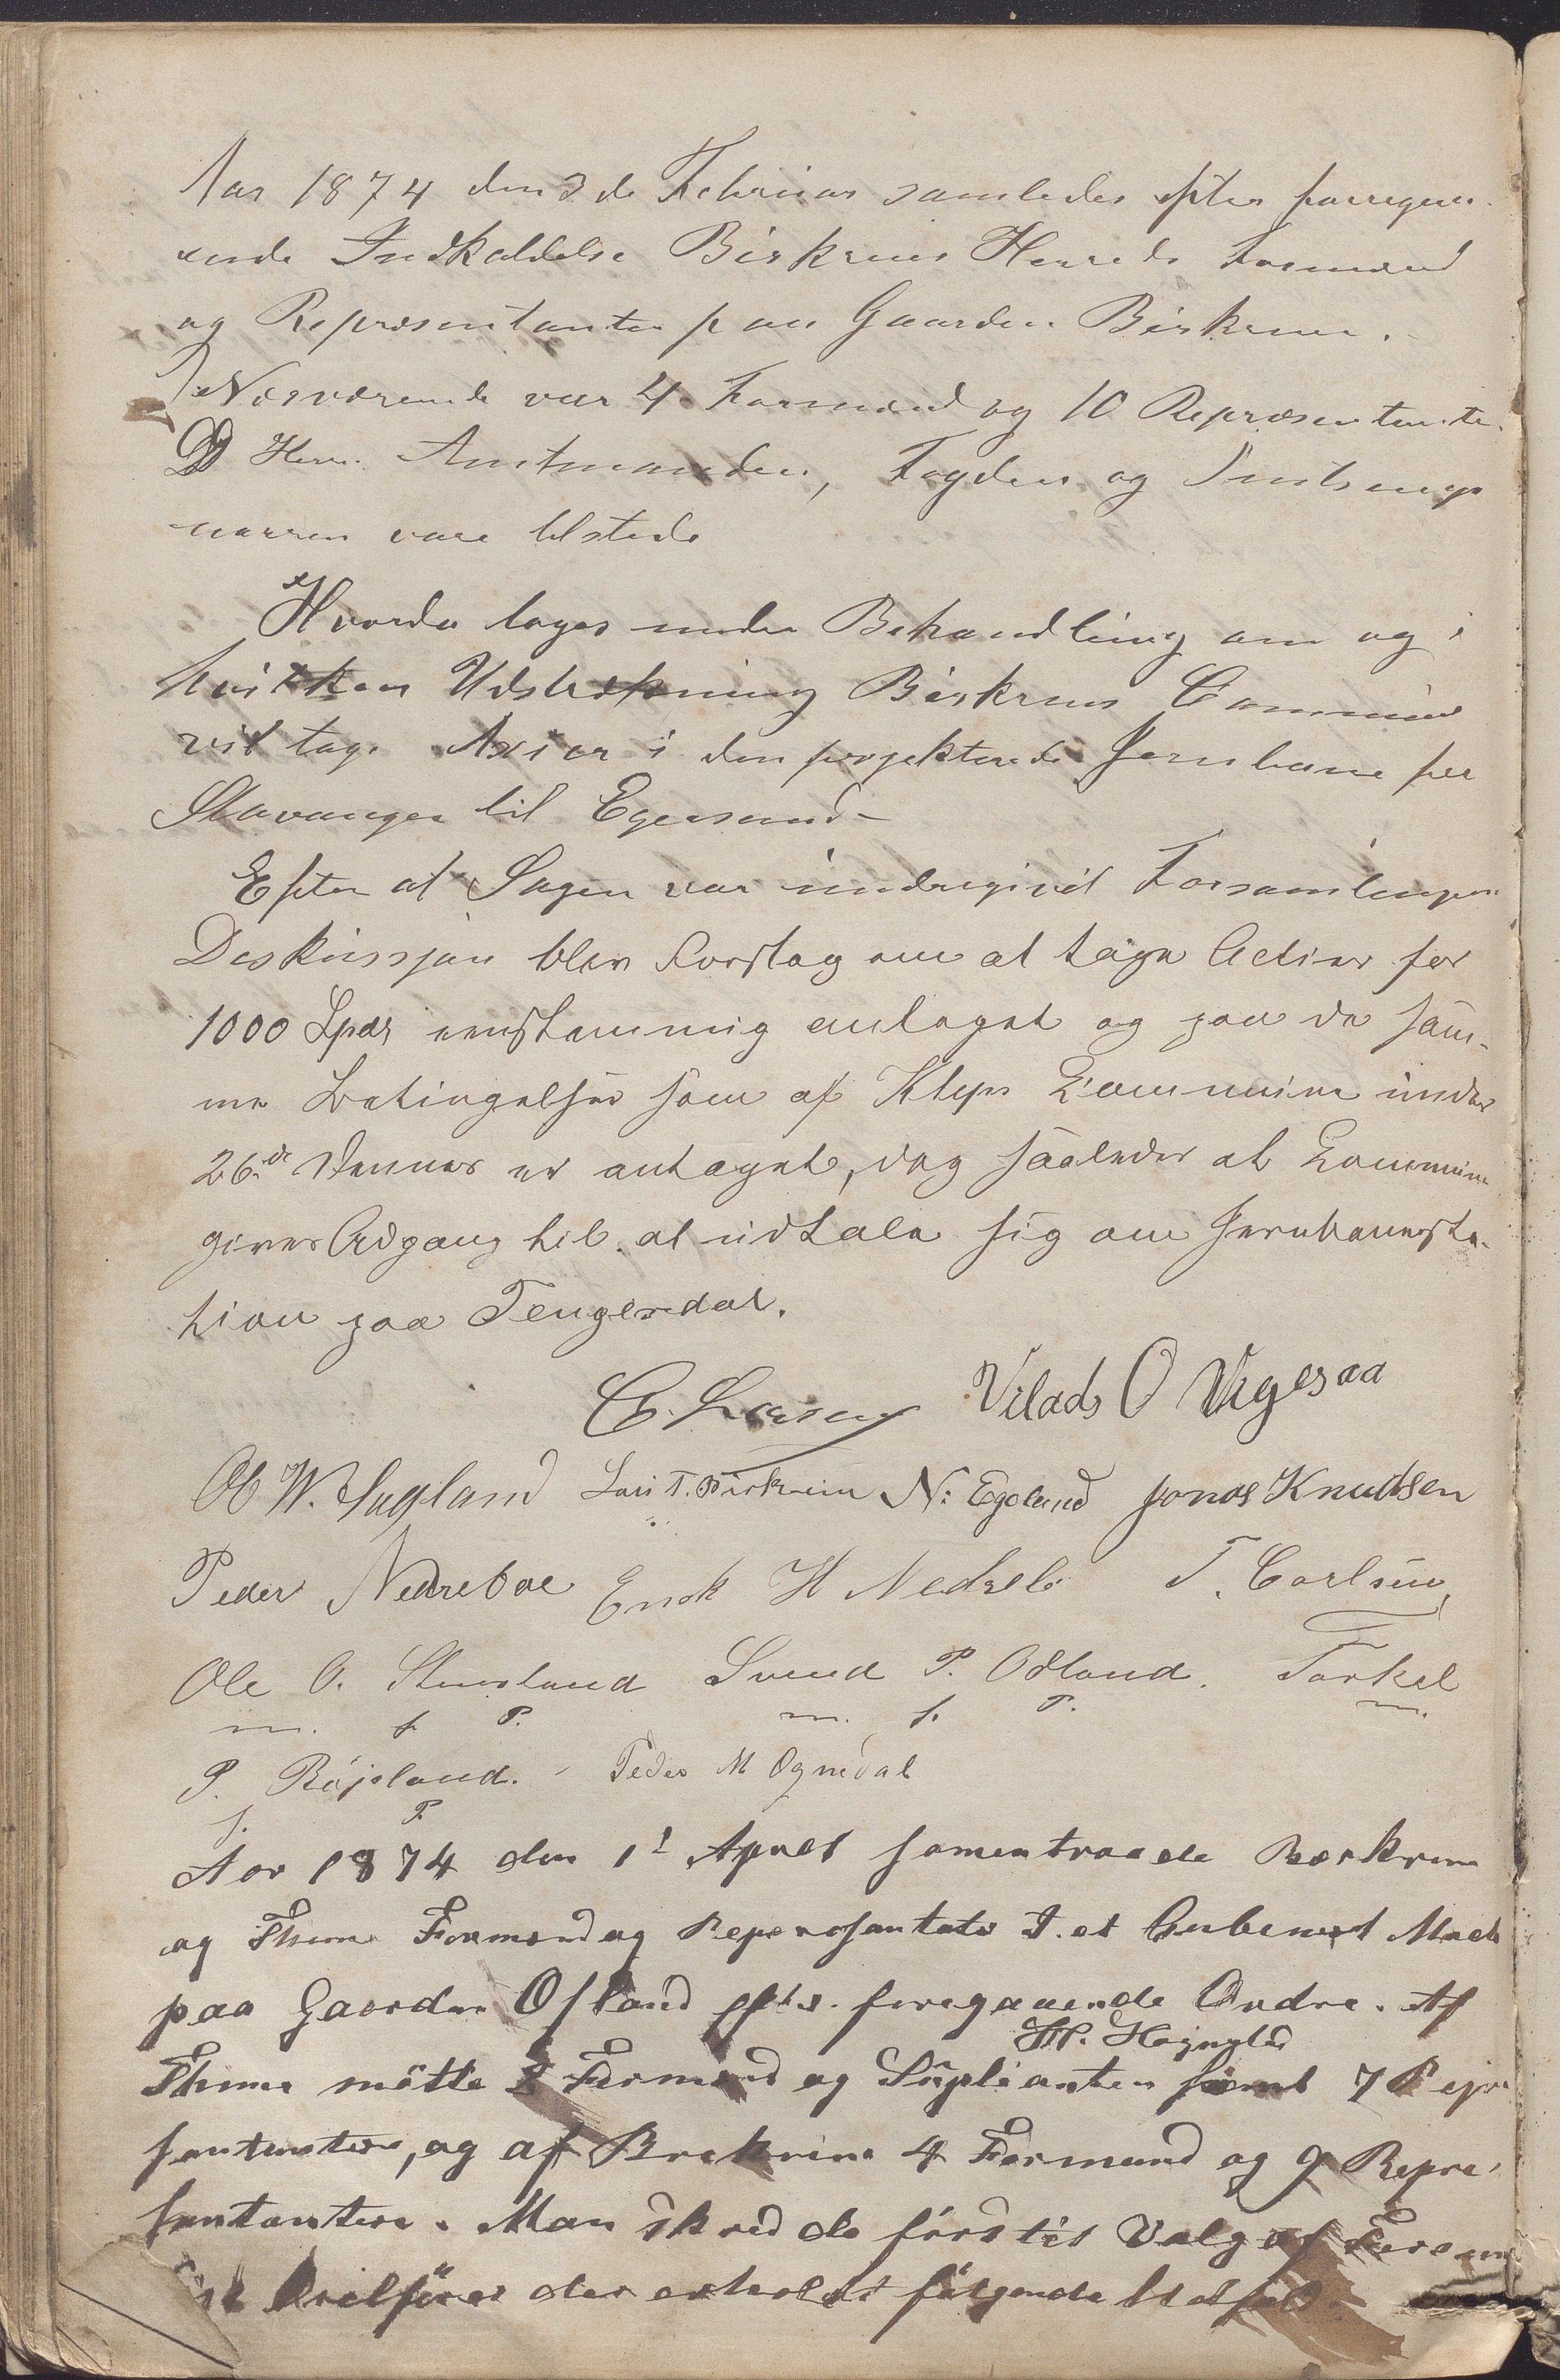 Aar 1874 den 3de Februar samledes efter forregua-
ende Indkaldelse Birkrems Herreds Formænd
og Repræsentanter paa Gaarden Birkrem.
Nærværende var 4 Formænd og 10 Repræsentanter.
Herr. Amtmanden, Fogden og
vare tilstede
Hvorda toges under Behandling om og i
hvilken Udstrækning Birkrems Commune
vil tage Axier i den projekterede Jernbane fra
Stavanger til Egersund-
Efter at Sagen var undergivet Forsamlingens
Diskussjon blev Forslag om at tage Actier for
1000 Spdr eenstemmig antaget og paa de sam-
me Betingelser som af Kleps Commune under
26de Januar er antaget, dog saaledes at Commune
gives Adgang til at udtale sig om Jernbanesta-
tion paa Tengesdal.
C. Larsen Vilads O Vigesaa
Ole W. Sagland T. Birkrem N: Egeland Jonas Knudsen
Peder Nedrebøe Enok H Nedrebø T. Carlsen
Ole O. Stensland Svend P. Odland. Torkel
m. f P. m. f. P. m.
P. Røjsland. - Peder M Ognedal
f. P.
Aar 1874 den 1t April samentraade Berkrem
og Thime Formend og Represantater I. et Møde
paa Gaarden Ofland efter foregaaende Ordre. Af
H. Hognstad
Thime møtte 2 Formend og Suplianten samt 7 Repre
santantere, og af Brekrim 4 Formend og 9 Repre-
santantere. Man skred da først til Valg af
der erholdt følgende Udfald